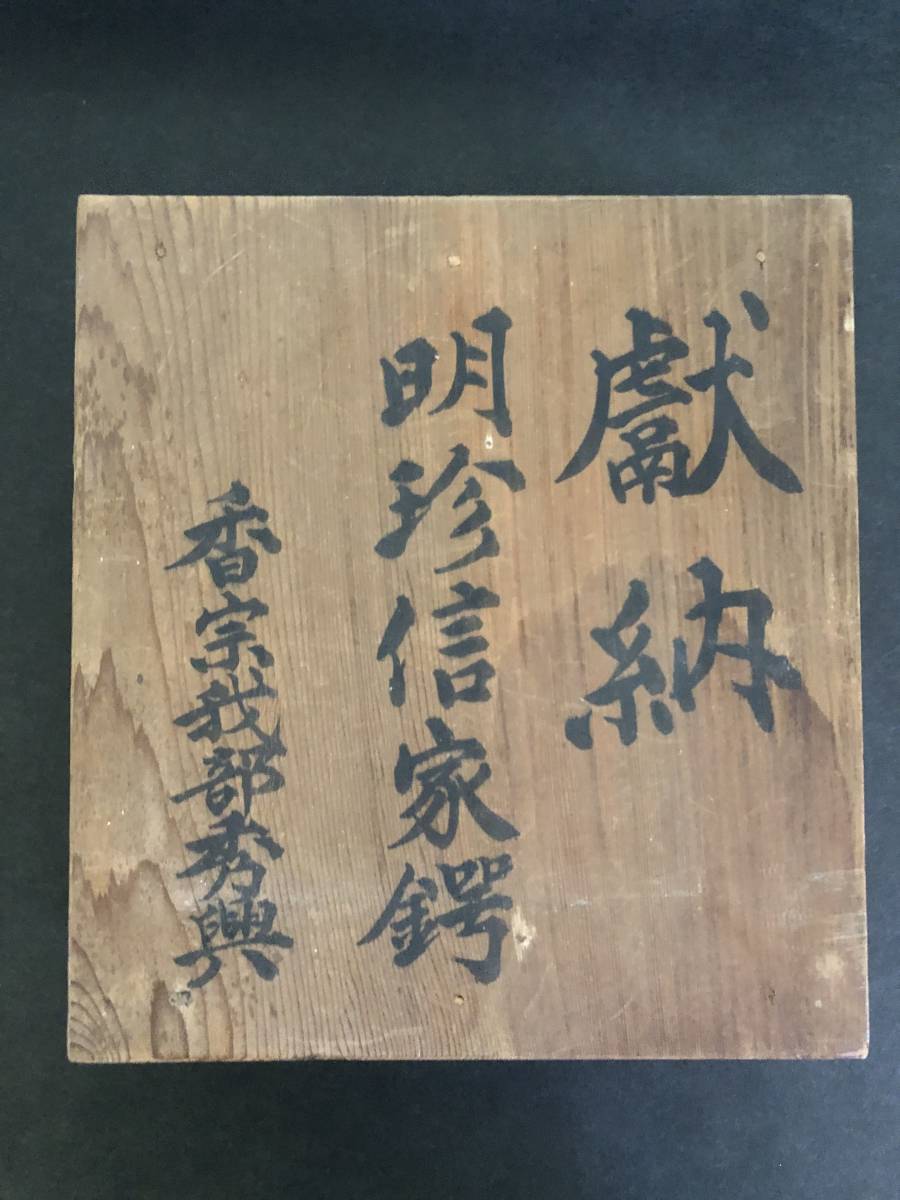 獻納
明珍信家鍔
香宗我部秀興